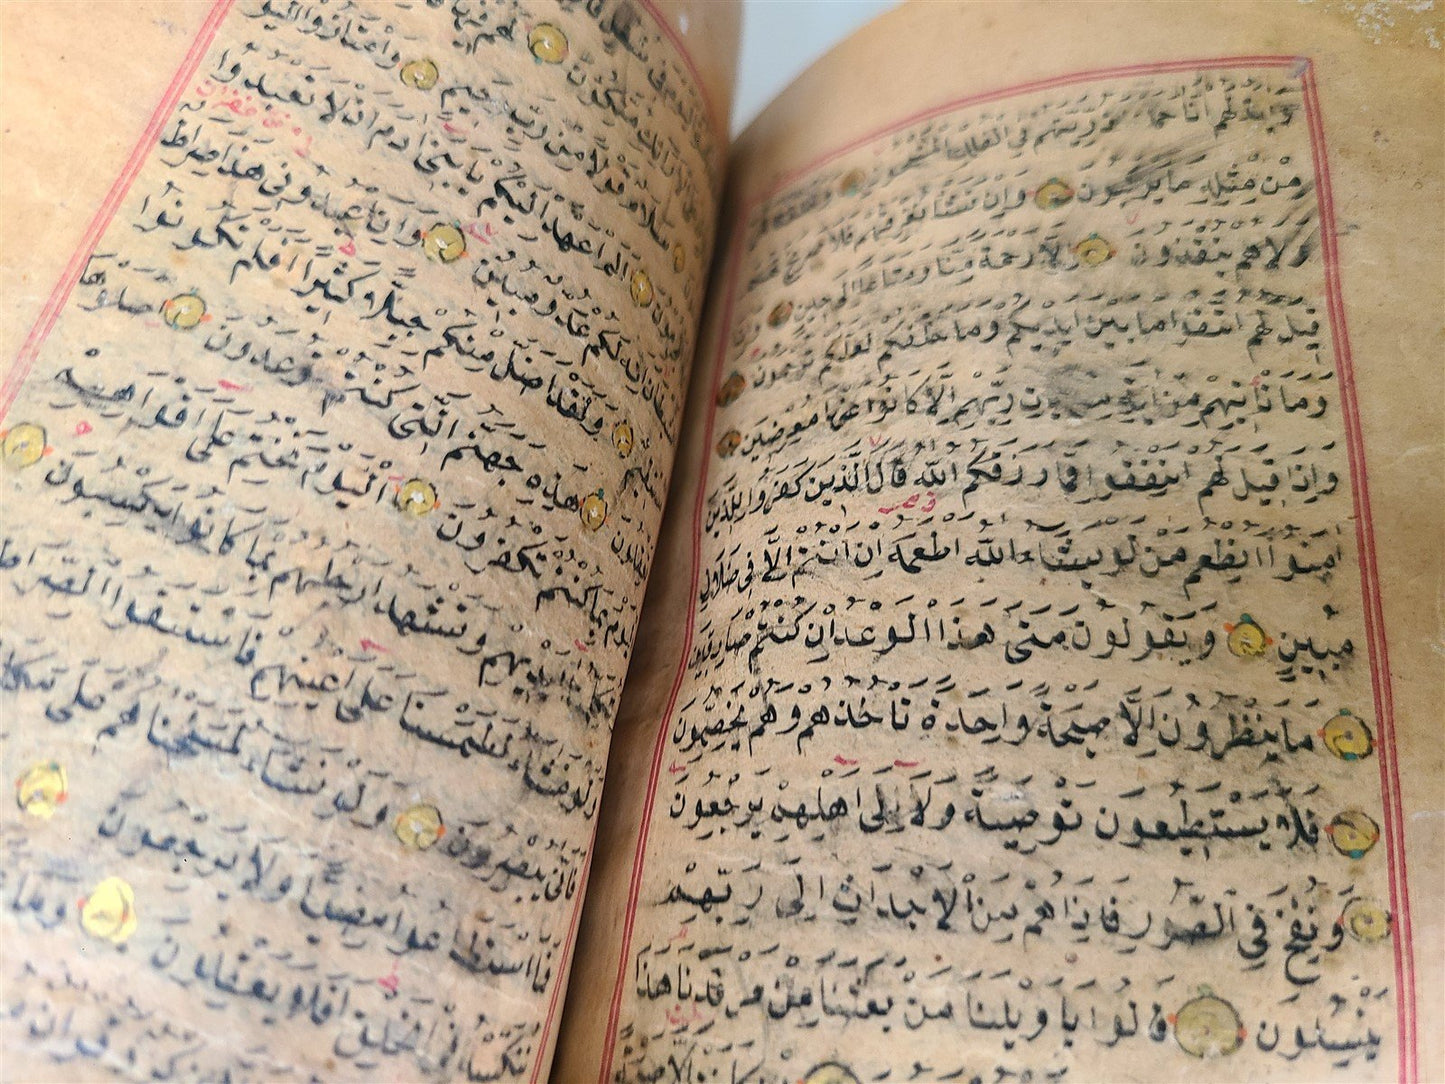 وَاٰيَةٌ لَهُمْ اَنَّا حَمَلْنَا ذُرِّيَّتَهُمْ فِي الْفُلْكِ الْمَشْحُونِ
مِنْ مِثْلِهِ مَا يَرْكَبُونَ وَاِنْ نَشَأْ نُغْرِقْهُمْ فَلَا صَرِيخَ لَهُمْ
وَلَا هُمْ يُنْقَذُونَ اِلَّا رَحْمَةً مِنَّا وَمَتَاعًا اِلَى حِينٍ وَاِذَا
قِيلَ لَهُمُ اتَّقُوا مَا بَيْنَ اَيْدِيكُمْ وَمَا خَلْفَكُمْ لَعَلَّكُمْ تُرْحَمُونَ
وَمَا تَأْتِيهِمْ مِنْ اٰيَةٍ مِنْ رَبِّهِمْ اِلَّا كَانُوا عَنْهَا مُعْرِضِينَ
وَاِذَا قِيلَ لَهُمْ اَنْفِقُوا مِمَّا رَزَقَكُمُ اللّٰهُ قَالَ الَّذِينَ كَفَرُوا لِلَّذِينَ
اٰمَنُوا اَنُطْعِمُ مَنْ لَوْ يَشَاءُ اللّٰهُ اَطْعَمَهُ اِنْ اَنْتُمْ اِلَّا فِي ضَلَالٍ
مُبِينٍ وَيَقُولُونَ مَتَى هٰذَا الْوَعْدُ اِنْ كُنْتُمْ صَادِقِينَ
مَا يَنْظُرُونَ اِلَّا صَيْحَةً وَاحِدَةً تَأْخُذُهُمْ وَهُمْ يَخِصِّمُونَ
فَلَا يَسْتَطِيعُونَ تَوْصِيَةً وَلَا اِلَى اَهْلِهِمْ يَرْجِعُونَ
وَنُفِخَ فِي الصُّورِ فَاِذَا هُمْ مِنَ الْاَجْدَاثِ اِلَى رَبِّهِمْ
يَنْسِلُونَ قَالُوا يَا وَيْلَنَا مَنْ بَعَثَنَا مِنْ مَرْقَدِنَا هٰذَا
لَهُمْ فِيهَا
سَلَامٌ قَوْلًا مِنْ رَبٍّ رَحِيمٍ وَامْتَازُوا الْيَوْمَ
اَلَمْ اَعْهَدْ اِلَيْكُمْ يَا بَنِي اٰدَمَ اَنْ لَا تَعْبُدُوا
الشَّيْطَانَ اِنَّهُ لَكُمْ عَدُوٌّ مُبِينٌ وَاَنِ اعْبُدُونِي هٰذَا صِرَاطٌ
مُسْتَقِيمٌ وَلَقَدْ اَضَلَّ مِنْكُمْ جِبِلًّا كَثِيرًا اَفَلَمْ تَكُونُوا
تَعْقِلُونَ هٰذِهِ جَهَنَّمُ الَّتِي كُنْتُمْ تُوعَدُونَ اصْلَوْهَا
الْيَوْمَ بِمَا كُنْتُمْ تَكْفُرُونَ اَلْيَوْمَ نَخْتِمُ عَلَى اَفْوَاهِهِمْ
وَتُكَلِّمُنَا اَيْدِيهِمْ وَتَشْهَدُ اَرْجُلُهُمْ بِمَا كَانُوا يَكْسِبُونَ
وَلَوْ نَشَاءُ لَطَمَسْنَا عَلَى اَعْيُنِهِمْ فَاسْتَبَقُوا الصِّرَاطَ
فَاَنَّى يُبْصِرُونَ وَلَوْ نَشَاءُ لَمَسَخْنَاهُمْ عَلَى مَكَانَتِهِمْ
فَمَا اسْتَطَاعُوا مُضِيًّا وَلَا يَرْجِعُونَ
فِي الْخَلْقِ اَفَلَا يَعْقِلُونَ وَمَا